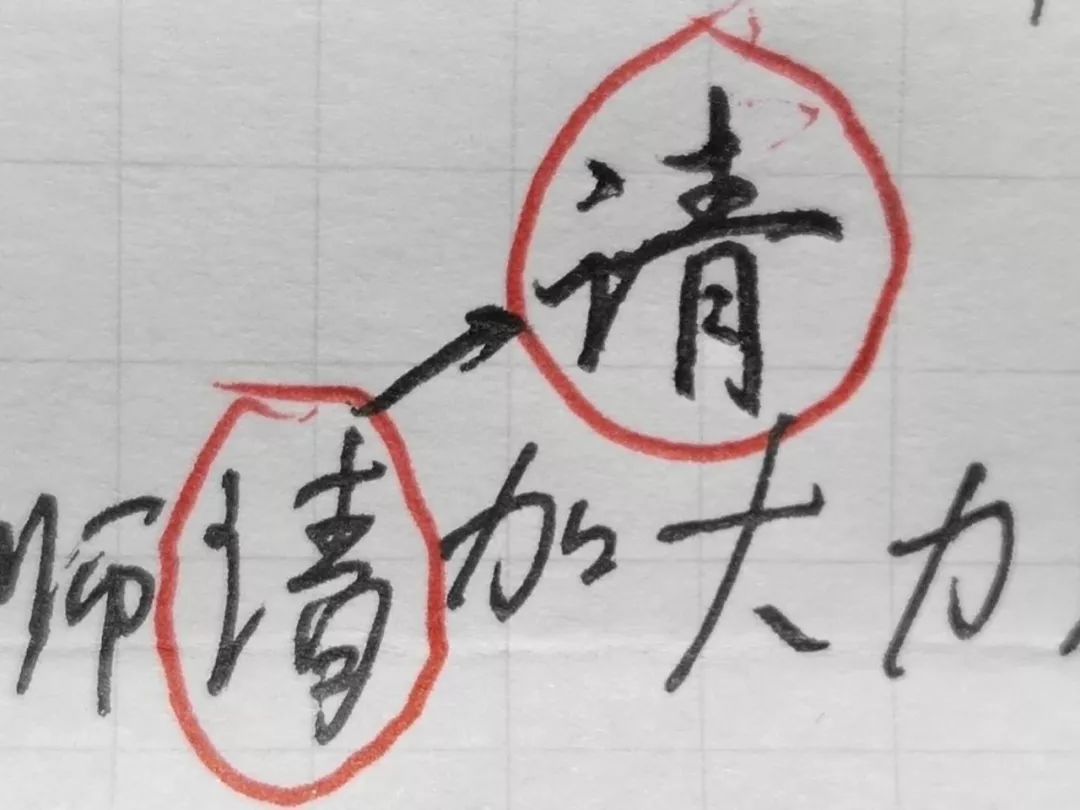 请
师请加大力